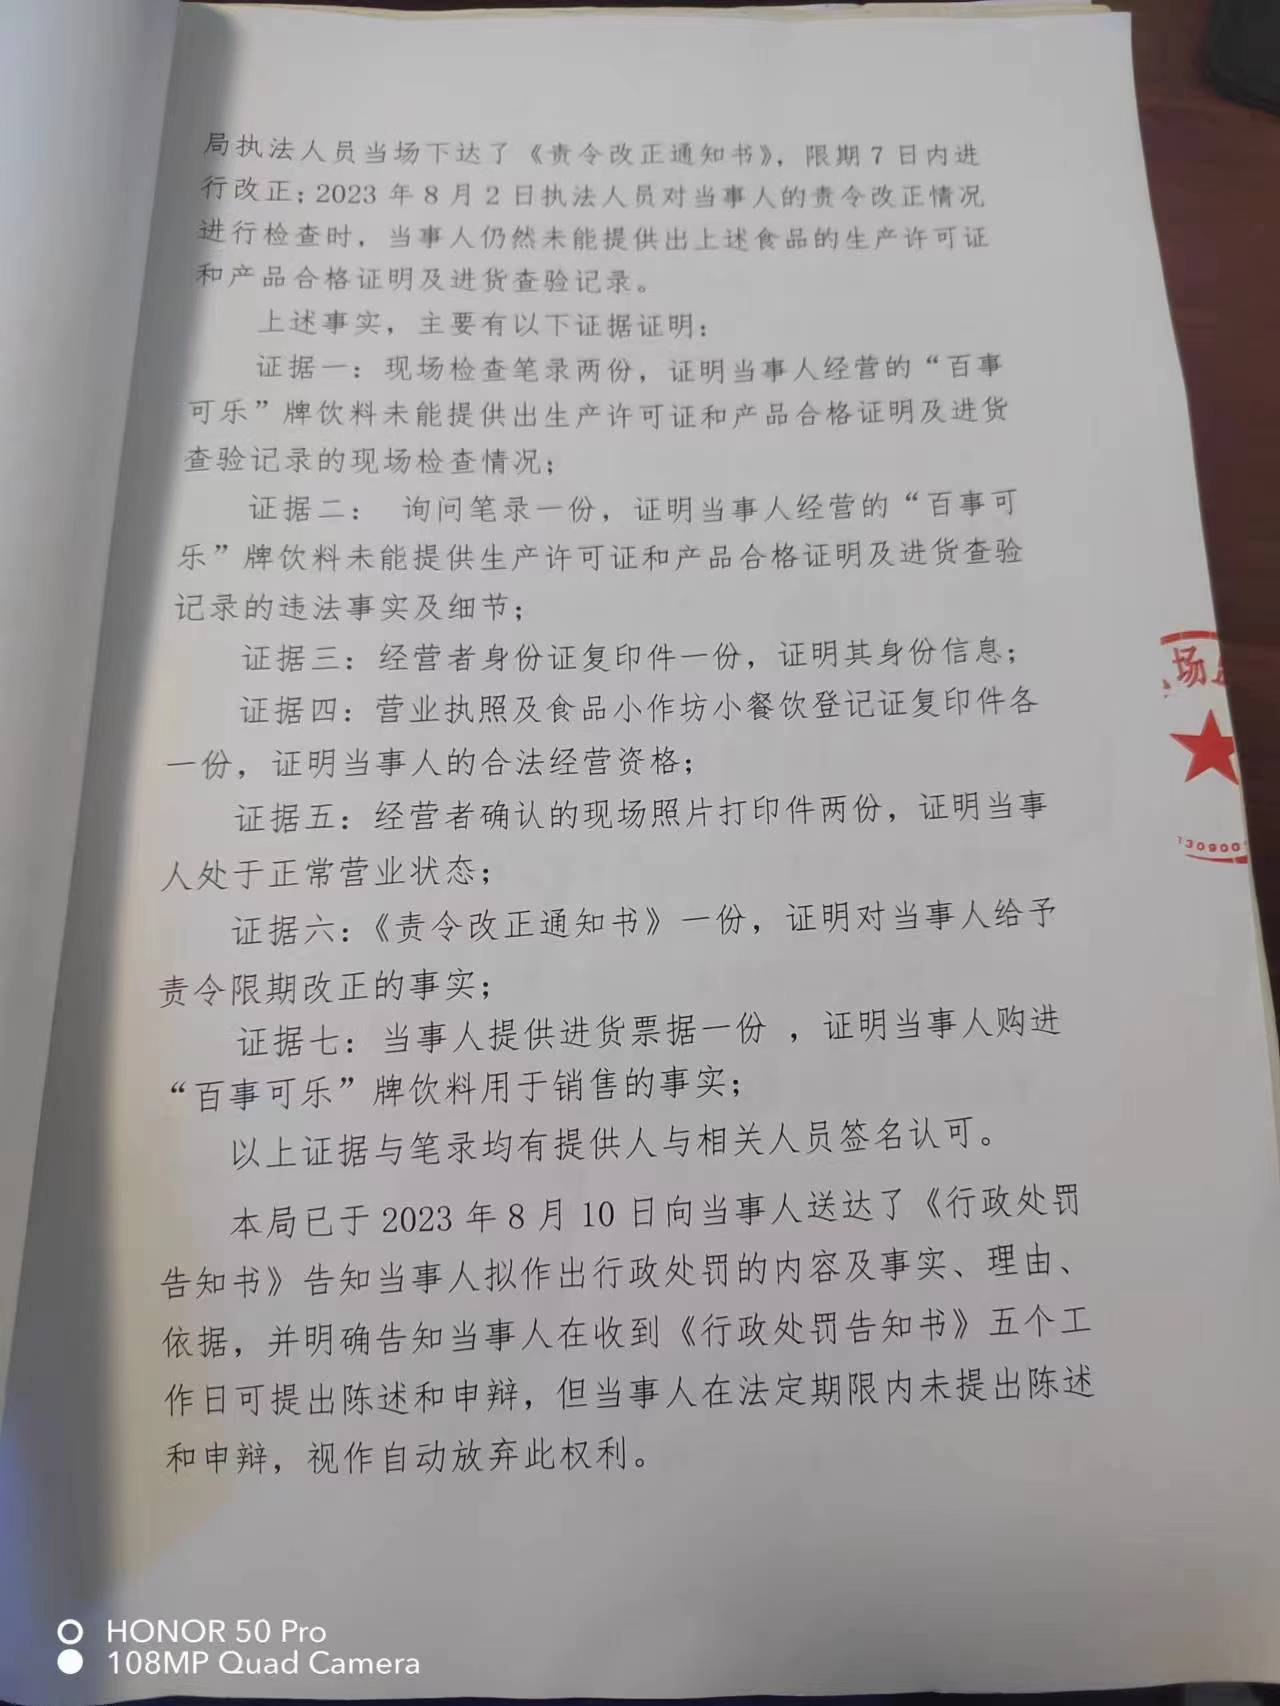 局执法人员当场下达了《责令改正通知书》，限期7日内进
行改正；2023年8月2日执法人员对当事人的责令改正情况
进行检查时，当事人仍然未能提供出上述食品的生产许可证
和产品合格证明及进货查验记录。
上述事实，主要有以下证据证明：
证据一：现场检查笔录两份，证明当事人经营的“百事
可乐”牌饮料未能提供出生产许可证和产品合格证明及进货
查验记录的现场检查情况；
证据二： 询问笔录一份，证明当事人经营的“百事可
乐”牌饮料未能提供生产许可证和产品合格证明及进货查验
记录的违法事实及细节；
证据三：经营者身份证复印件一份，证明其身份信息；
证据四：营业执照及食品小作坊小餐饮登记证复印件各
一份，证明当事人的合法经营资格；
证据五：经营者确认的现场照片打印件两份，证明当事
人处于正常营业状态；
证据六：《责令改正通知书》一份，证明对当事人给予
责令限期改正的事实；
证据七：当事人提供进货票据一份 ，证明当事人购进
“百事可乐”牌饮料用于销售的事实；
以上证据与笔录均有提供人与相关人员签名认可。
本局已于2023年8月10日向当事人送达了《行政处罚
告知书》告知当事人拟作出行政处罚的内容及事实、理由、
依据，并明确告知当事人在收到《行政处罚告知书》五个工
作日可提出陈述和申辩，但当事人在法定期限内未提出陈述
和申辩，视作自动放弃此权利。
场
130900
HONOR 50 Pro
108MP Quad Camera